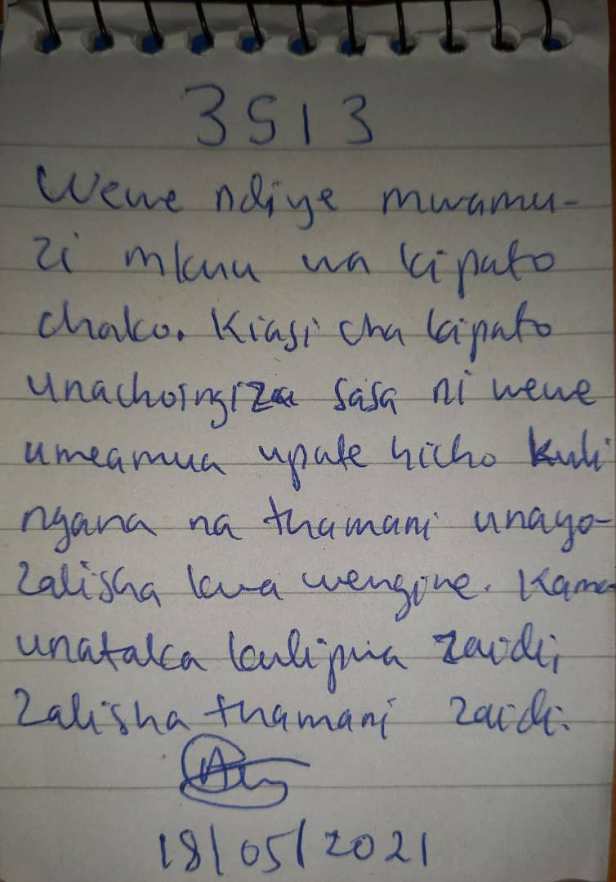 3513
Wewe ndiye mwamu-
zi mkuu wa kipato
chako. Kiasi cha kipato
unachoingiza sasa ni wewe
umeamua upate hicho kuli
ngana na thamani unayo-
zalisha kwa wengine. Kama
unataka kulipwa zaidi,
zalisha thamani zaidi.
18/05/2021